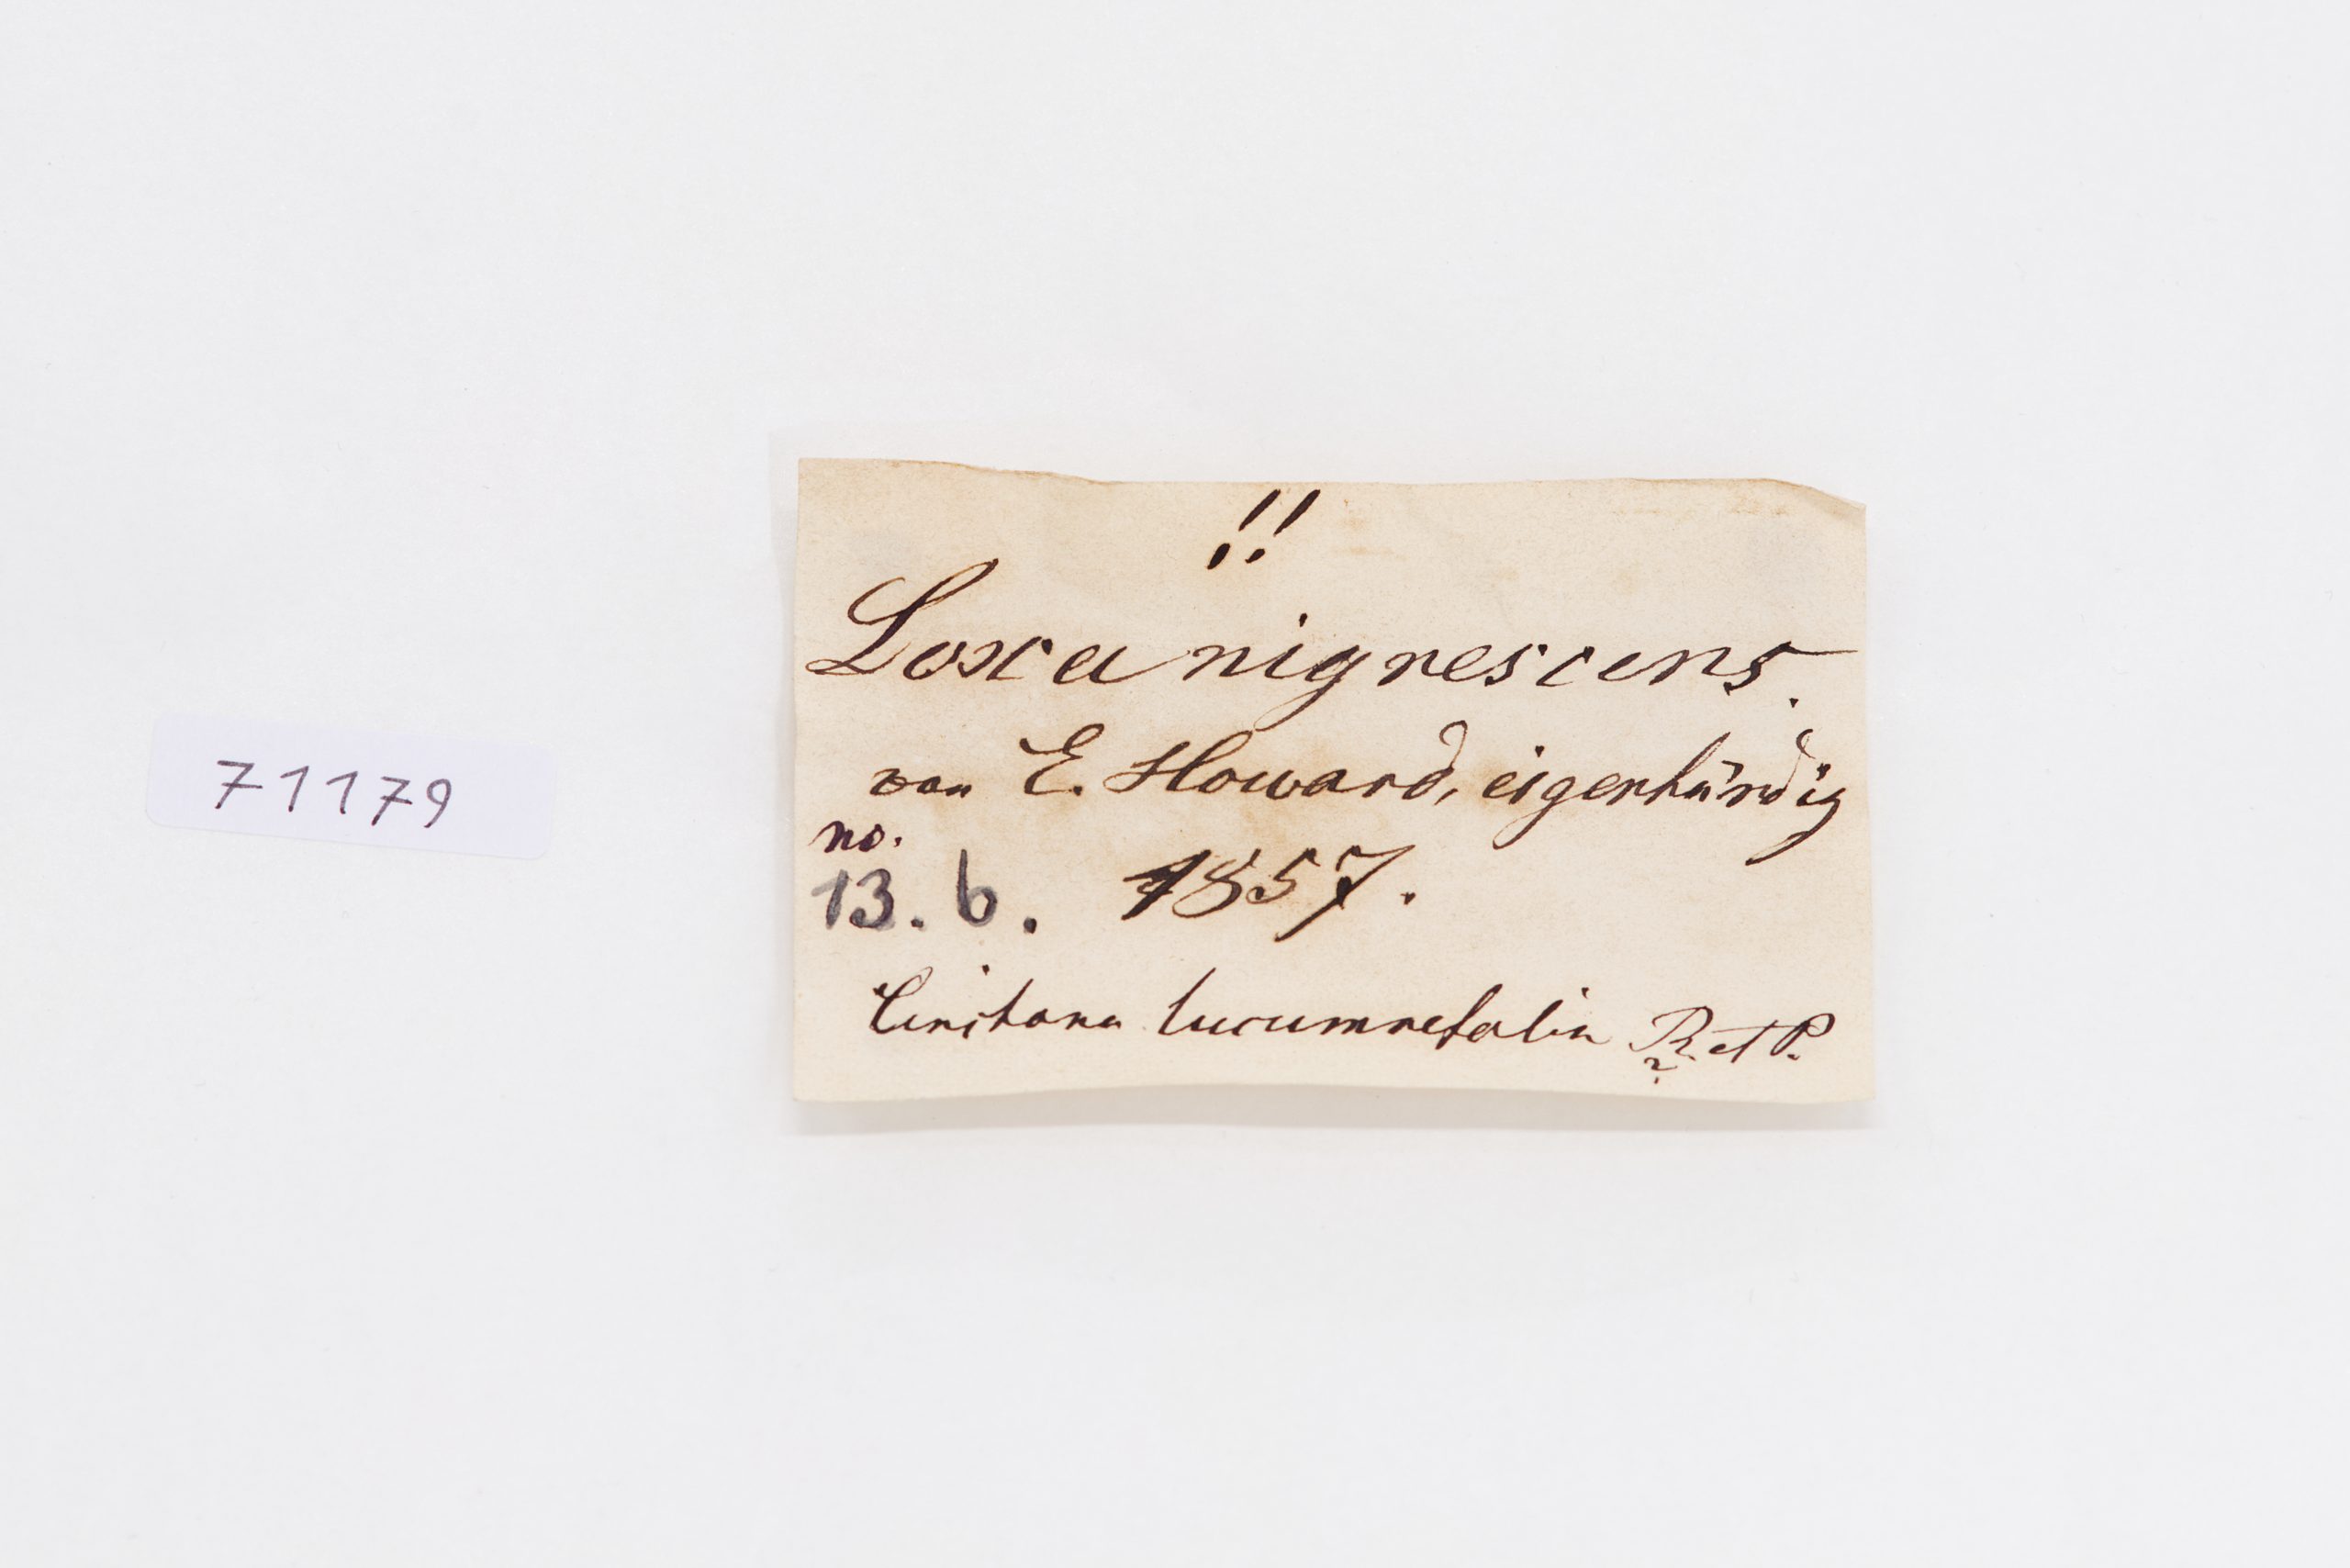 71179
!!
Loxa nigrescens.
von E. Howard, eigenhändig
no.
13. b. 1857.
Cinchona lucumaefolia R. et P.
?